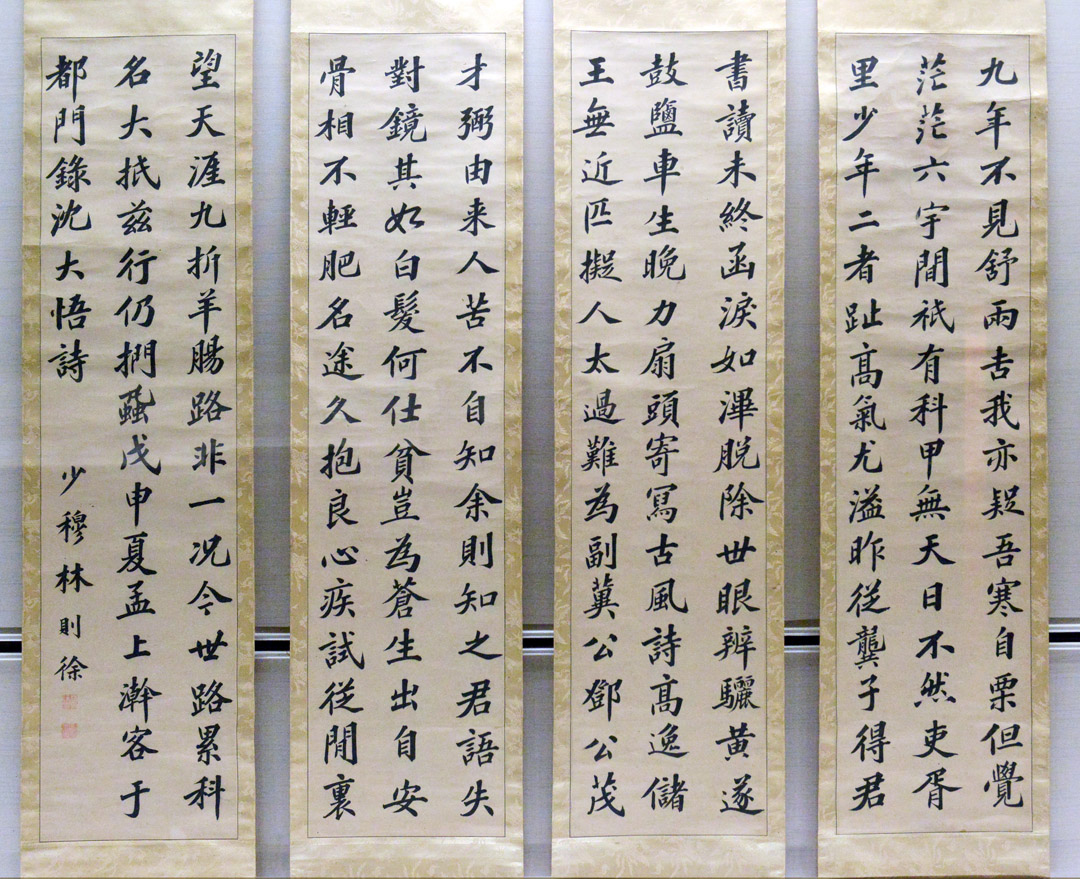 九年不見舒雨吉我亦疑吾寒自栗但覺
茫茫六宇間祇有科甲無天日不然吏胥
里少年二者趾高氣尤溢昨従龔子得君
書讀未終函淚如渾脫除世眼辨驪黃遂
鼓鹽車生晚力扇頭寄冩古風詩高逸儲
王無近匹擬人太過難為副冀公鄧公茂
才弼由来人苦不自知余則知之君語失
對鏡其如白髮何仕貧豈為蒼生出自安
骨相不輕肥名途久抱良心疾試従閒裏
望天涯九折羊腸路非一况今世路累科
名大抵兹行仍捫蝨戊申夏孟上澣客于
都門錄沈大悟詩
少穆林則徐